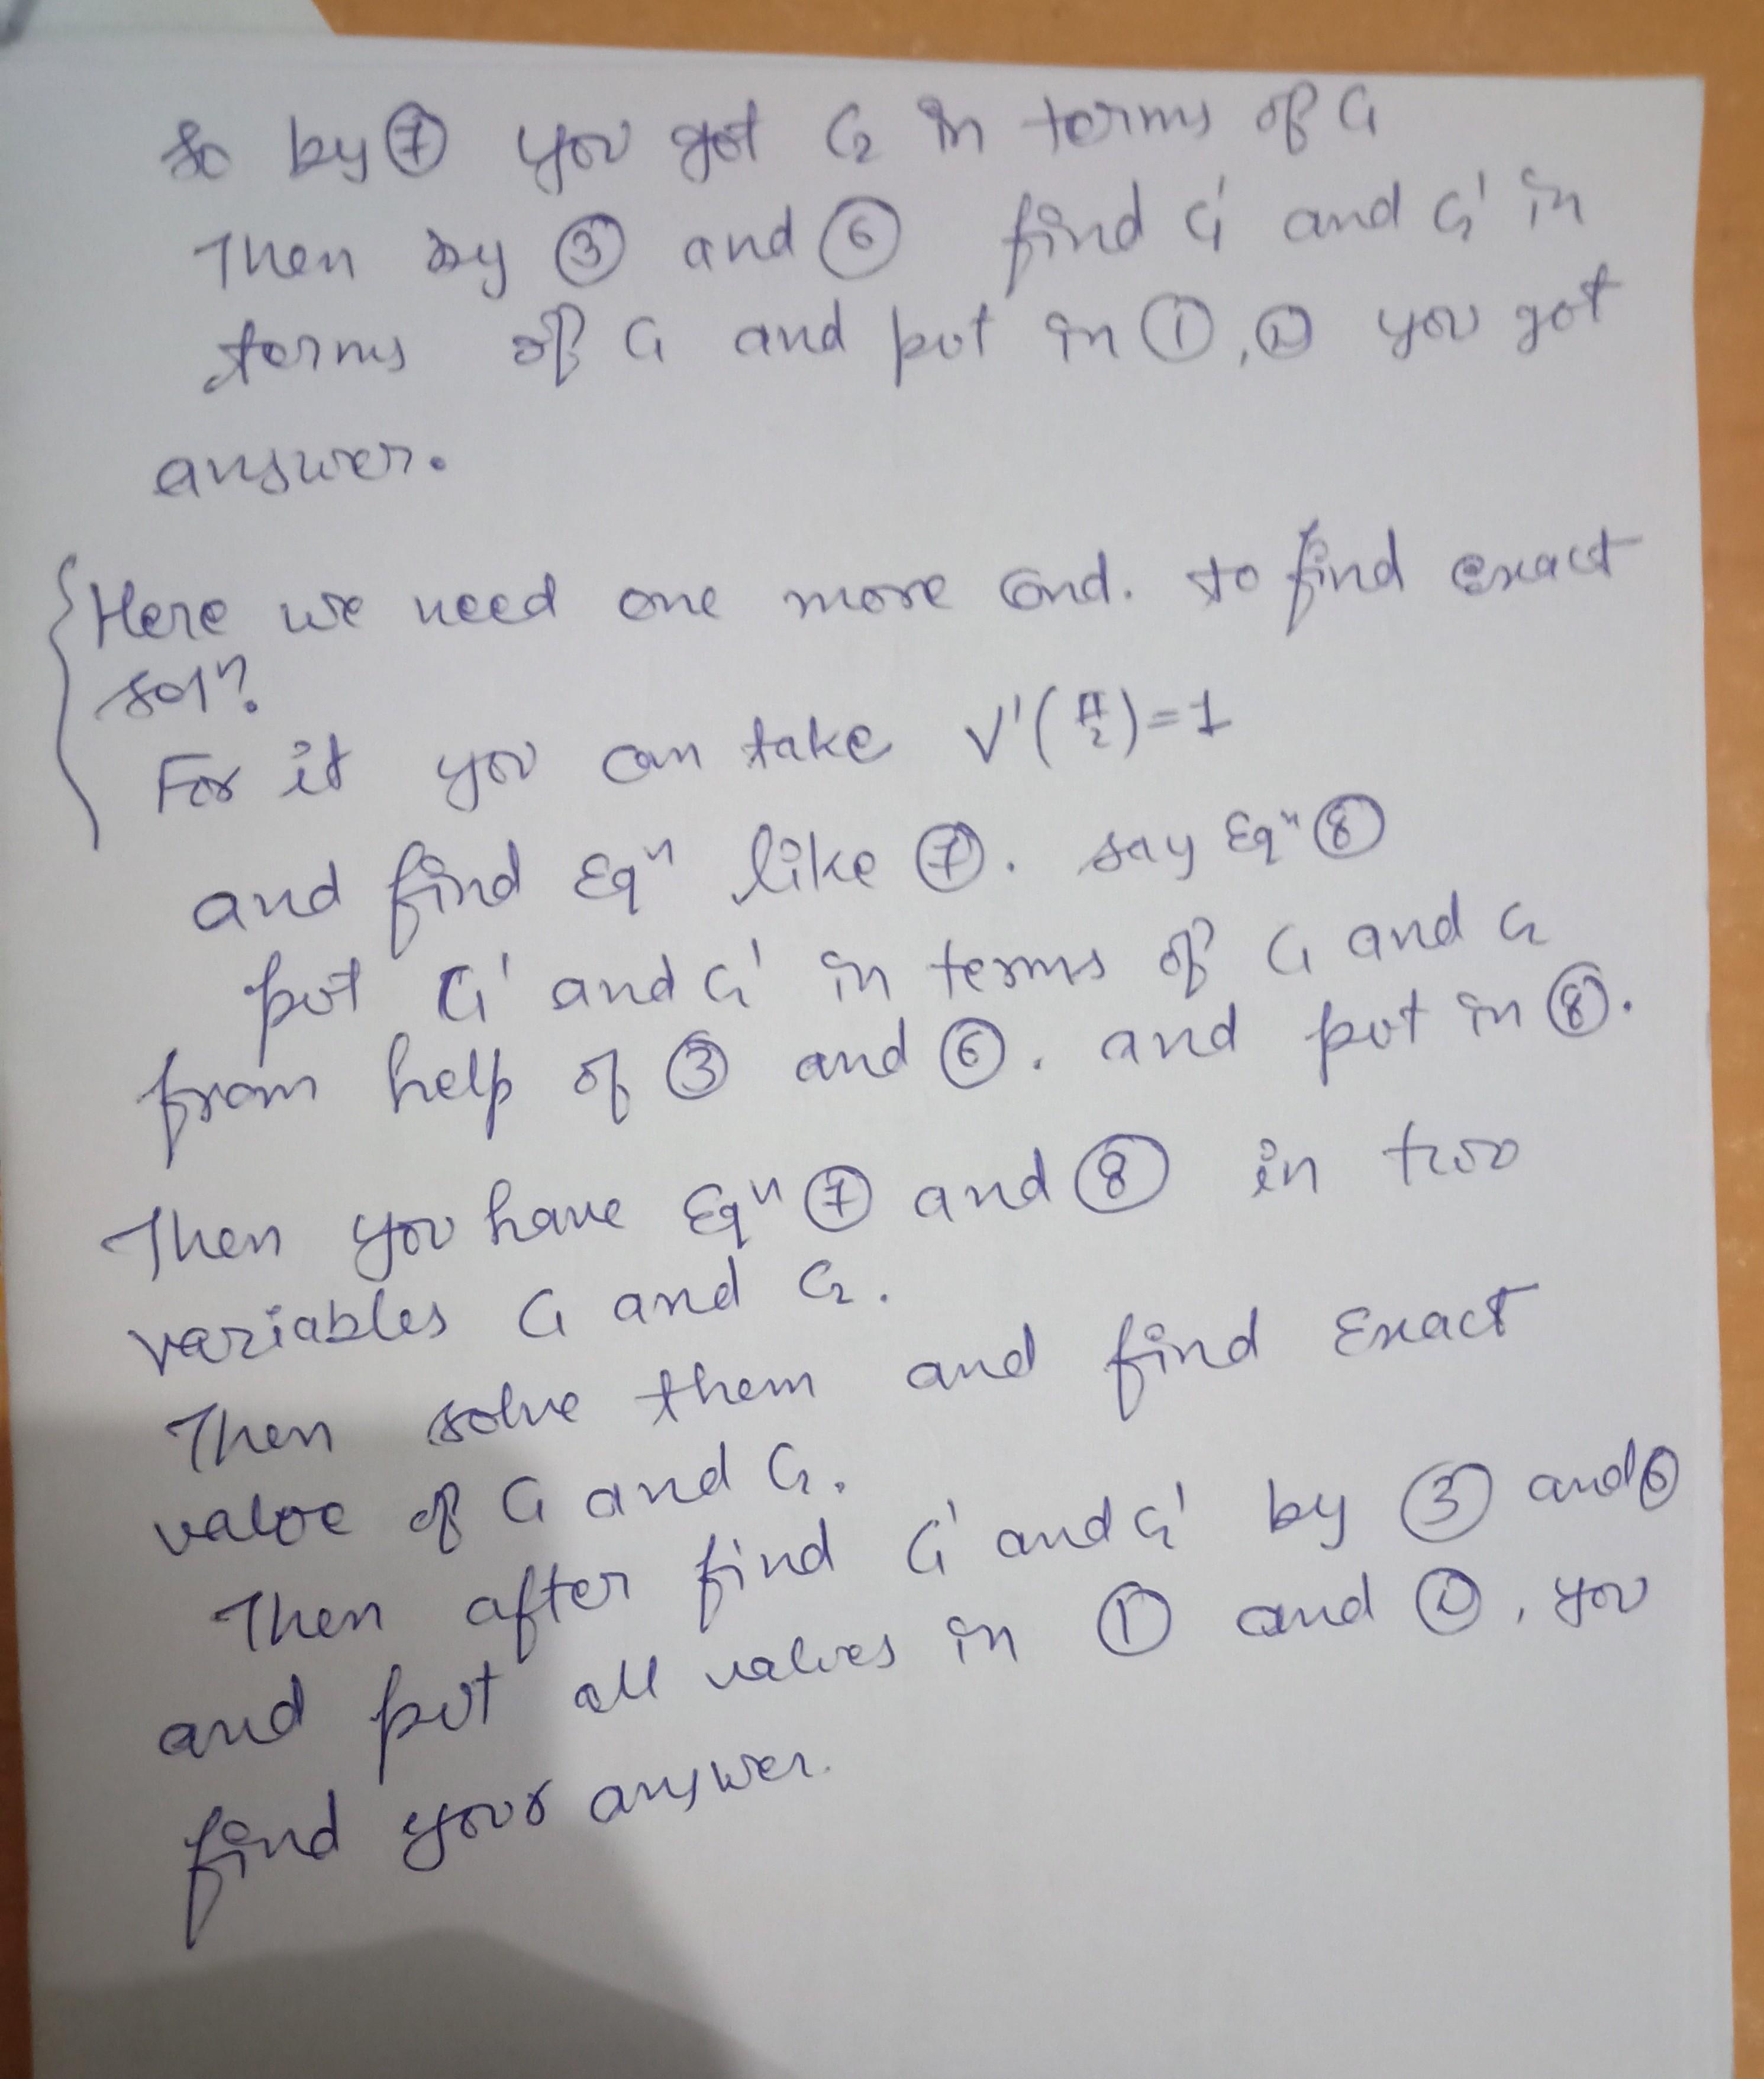 So by ⑦ you got C₂ in terms of C₁
Then by ③ and ⑥ find C₁' and C₂' in
terms of C₁ and put in ①, ② you got
answer.
Here we need one more cond. to find exact
solⁿ.
For it you can take V'(π/2)=1
and find Eqⁿ like ⑦. say Eqⁿ ⑧
put C₁' and C₂' in terms of C₁ and C₂
from help of ③ and ⑥. and put in ⑧.
Then you have Eqⁿ ⑦ and ⑧ in two
variables C₁ and C₂.
Then solve them and find Exact
value of C₁ and C₂.
Then after find C₁' and C₂' by ③ and ⑥
and put all values in ① and ②, you
find your answer.